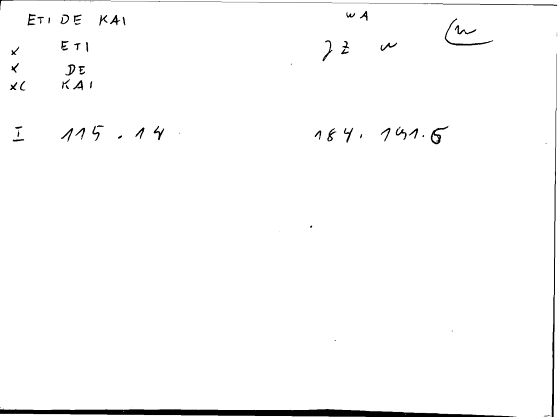 ETI DE KAI WA
x ETI
x DE
xc KAI
I 115.14 184.191.6